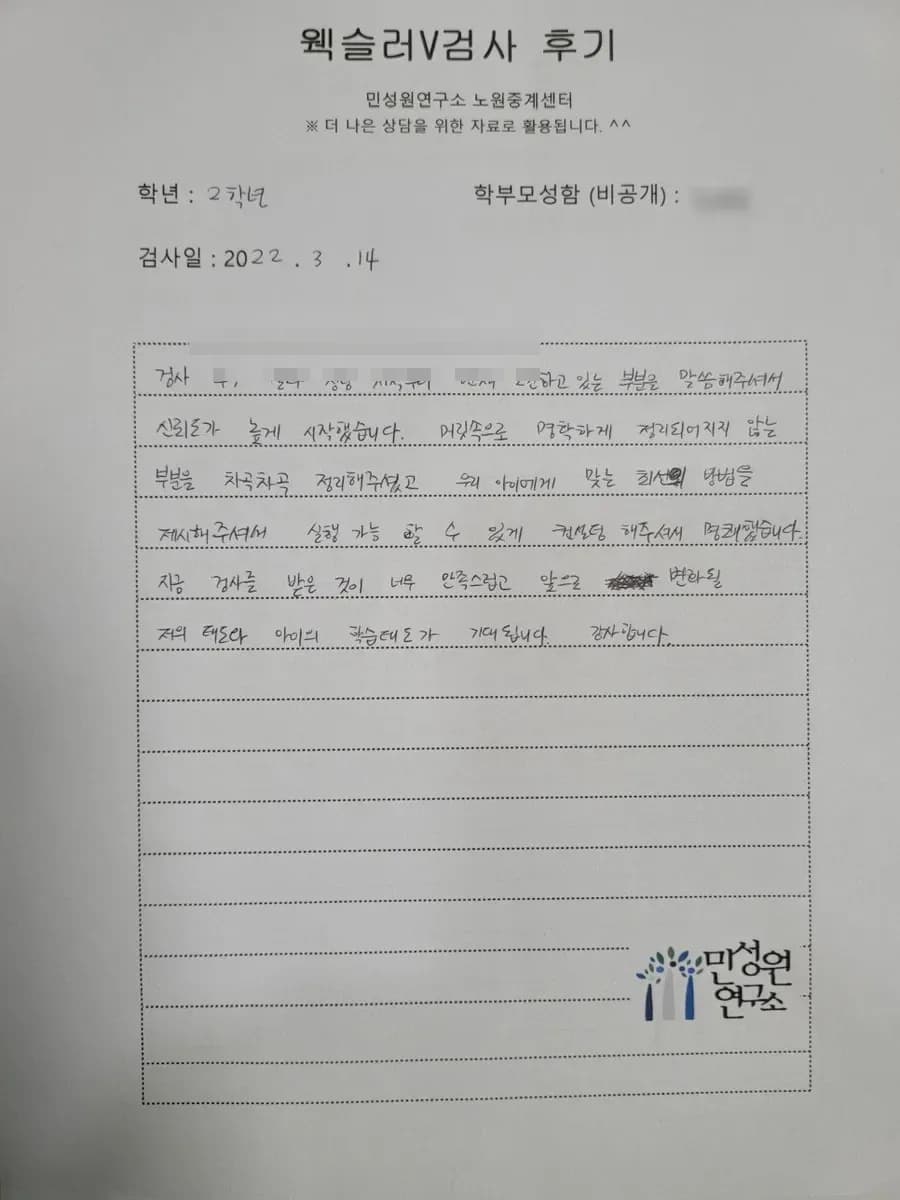 웩슬러V검사 후기
민성원연구소 노원중계센터
※ 더 나은 상담을 위한 자료로 활용됩니다. ^^
학년 : 2학년
학부모성함 (비공개) :
검사일 : 2022 . 3 . 14
검사 하고 있는 부분을 말씀해주셔서
신뢰도가 높게 시작했습니다. 머릿속으로 명확하게 정리되어지지 않는
부분을 차곡차곡 정리해주셨고 우리 아이에게 맞는 최선의 방법을
제시해 주셔서 실행 가능 할 수 있게 컨설팅 해주셔서 명쾌했습니다.
지금 검사를 받은 것이 너무 만족스럽고 앞으로 변화될
저의 태도와 아이의 학습태도가 기대됩니다. 감사합니다.
민성원
연구소